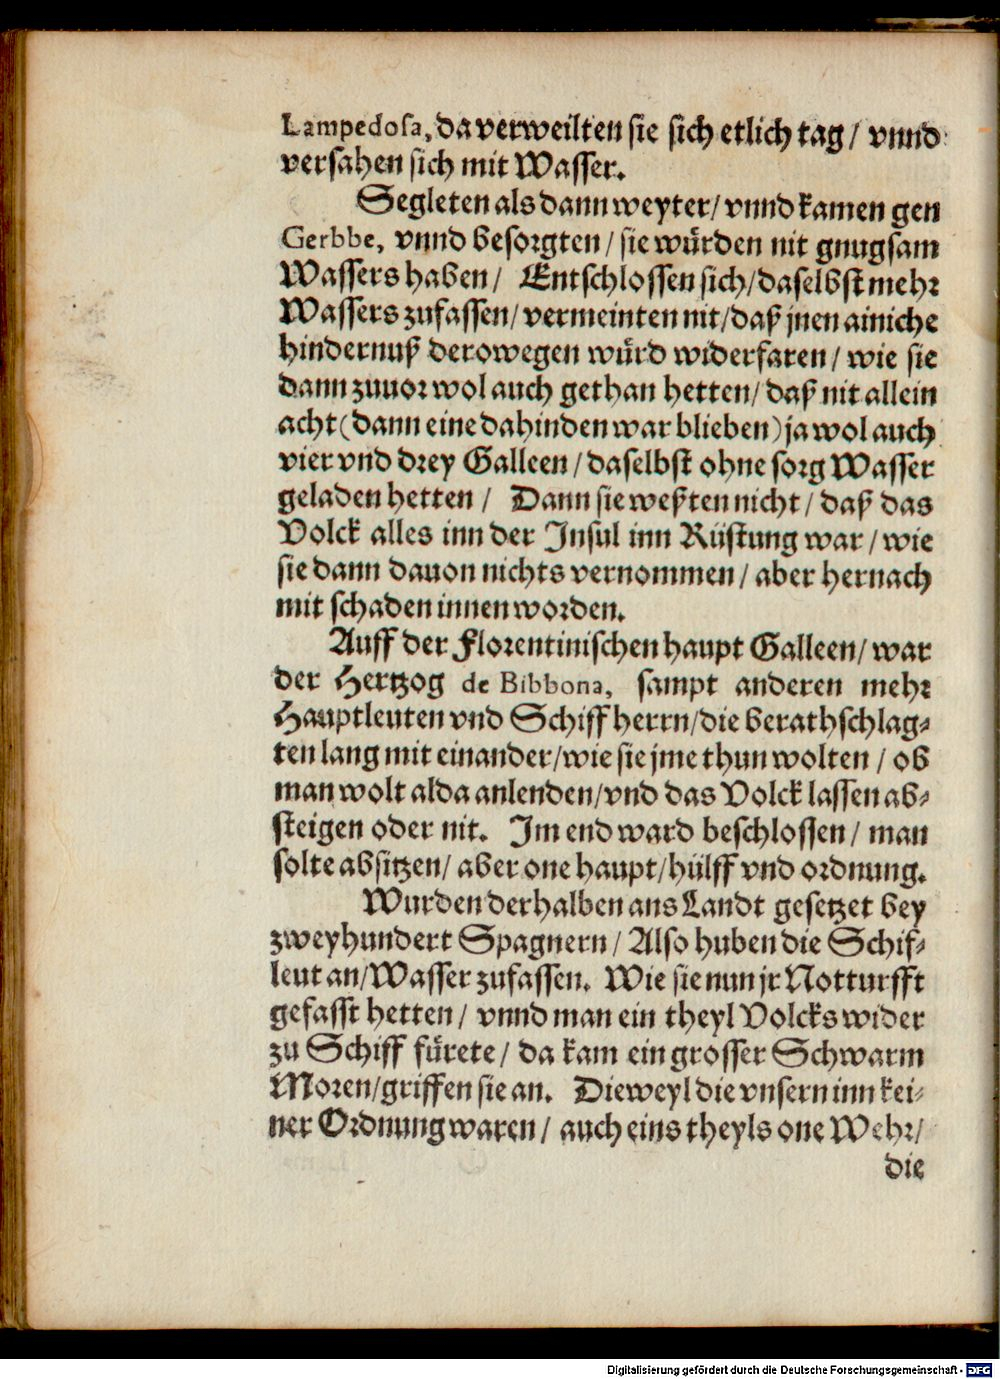 Lampedosa, da verweilten sie sich etlich tag / vnnd
versahen sich mit Wasser.
Segleten als dann weyter / vnnd kamen gen
Gerbbe, vnnd besorgten / sie wuͤrden nit gnugsam
Wassers haben / Entschlossen sich / daselbst mehr
Wassers zufassen / vermeinten nit / daß jnen ainiche
hindernuß derowegen wuͤrd widerfaren / wie sie
dann zuuor wol auch gethan hetten / daß nit allein
acht (dann eine dahinden war blieben) ja wol auch
vier vnd drey Galleen / daselbst ohne sorg Wasser
geladen hetten / Dann sie weßten nicht / daß das
Volck alles inn der Insul inn Rüstung war / wie
sie dann dauon nichts vernommen / aber hernach
mit schaden innen worden.
Auff der Florentinischen haupt Galleen / war
der Hertzog de Bibbona, sampt anderen mehr
Hauptleuten vnd Schiffherrn / die berathschlag⸗
ten lang mit einander / wie sie jme thun wolten / ob
man wolt alda anlenden / vnd das Volck lassen ab⸗
steigen oder nit. Im end ward beschlossen / man
solte absitzen / aber one haupt / hülff vnd ordnung.
Wurden derhalben ans Landt gesetzet bey
zweyhundert Spagnern / Also huben die Schif⸗
leut an / Wasser zufassen. Wie sie nun jr Notturfft
gefasst hetten / vnnd man ein theyl Volcks wider
zu Schiff fuͤrete / da kam ein grosser Schwarm
Moren / griffen sie an. Dieweyl die vnsern inn kei⸗
ner Ordnung waren / auch eins theyls one Wehr /
die
Digitalisierung gefördert durch die Deutsche Forschungsgemeinschaft - DFG